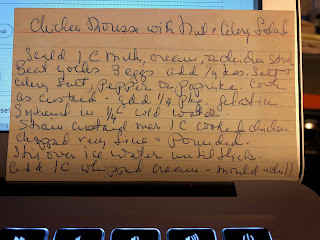 Chicken Mousse with Nut + Celery Salad
Scald 1 C milk, cream, or chicken stock
Beat yolks 3 eggs add 1/4 teas. salt
celery salt, pepper or paprika. Cook
as custard - add 1/4 pkg. gelatin
in 1/4 C cold water.
Strain custard over 1 C cooked chicken
chopped very fine + pounded.
Stir over ice water until thick.
Add 1 C whipped cream - mould + chill